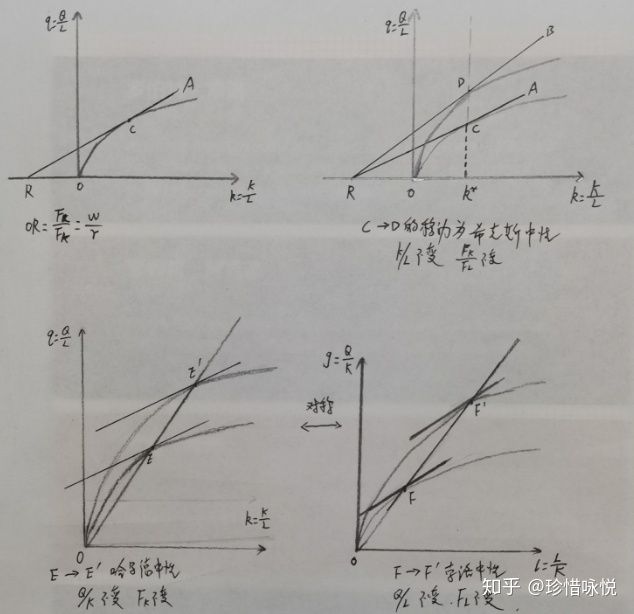 q=Q/L
A
C
R
O
k=K/L
OR=F_L/F_K=w/r
q=Q/L
B
D
A
C
R
O
k*
k=K/L
C→D的移动为希克斯中性
K/L不变 F_K/F_L不变
q=Q/L
E'
E
k=K/L
O
E→E' 哈罗德中性
Q/K不变 F_K不变
对称
g=Q/K
F'
F
O
l=L/K
F→F' 索洛中性
Q/L不变. F_L不变
知乎 @珍惜咏悦